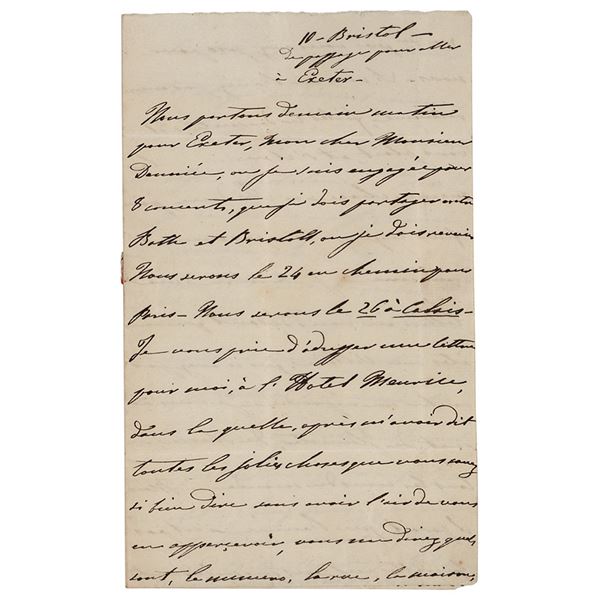 10 - Bristol -
De passage pour aller
à Exeter -
Nous partons demain matin
pour Exeter, mon cher Monsieur
où je suis engagée pour
8 concerts, que je dois partager entre
Bath et Bristoll, ou je dois revenir
Nous serons le 24 en chemin pour
Paris - Nous serons le 26 à Calais -
Je vous prie d'adresser une lettre
pour moi, à l'Hotel Meurice,
dans la quelle, après m'avoir dit
toutes les jolies choses que vous savez
si bien dire sans avoir l'air de vous
en apperçevoir, vous me direz quels
sont, le numero, la rue, la maison,